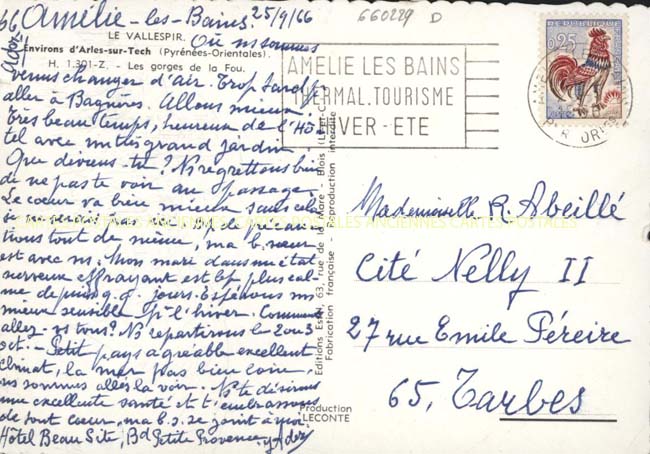 66 Amélie-les-Bains. 25/9/66
660229 D
LE VALLESPIR. Où ns sommes
Environs d'Arles-sur-Tech (Pyrénées-Orientales).
H. 1.301-Z. - Les gorges de la Fou.
venus changer d'air. Trop tard pr
aller à Bagnères. Allons mieux.
Très beau temps, heureux de l'Hô-
tel avec un très grand jardin.
Que deviens-tu? Ns regrettons bien
de ne pas te voir au passage.
Le cœur va bien mieux sans cela
je ne serais pas ici.
tions tout de même, ma b. sœur
est avec ns. Mon mari dans un état
nerveux effrayant est bp plus cal-
me depuis q.q. jours. Espérons un
mieux sensible pr l'hiver. Comment
allez-vs tous? Ns repartirons le 2 ou 3
oct. - Petit pays agréable excellent
climat, la mer pas bien loin,
ns sommes allés la voir. Ns te désirons
une excellente santé et t'embrassons
de tout cœur, ma b.s. se joint à moi.
Hôtel Beau Site, Bd Petite Provence
AMELIE LES BAINS
THERMAL. TOURISME
HIVER - ETE
REPUBLIQUE
0,25
Editions Estel, 63, rue de la Mare - Blois
Fabrication française - Reproduction interdite
Production
LECONTE
Mademoiselle R. Abeillé
Cité Nelly II
27 rue Emile Péreire
65. Tarbes
CARTES POSTALES ANCIENNES CARTES POSTALES